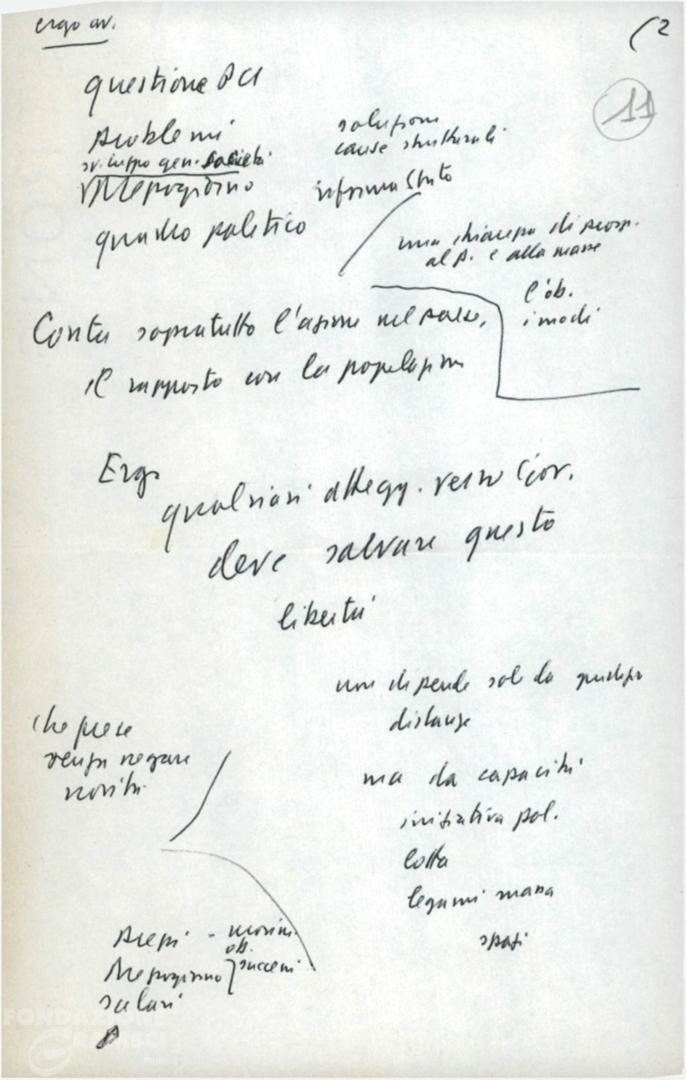 ergo av.
(2
11
questione PCI
Problemi
sviluppo gen. società
Mezzogiorno
quadro politico
soluzioni
cause strutturali
riforma Stato
una chiarezza di prosp.
al P. e alla masse
l'ob.
i modi
Conta sopratutto l'azione nel paese,
il rapporto con la popolazione
Ergo
qualsiasi attegg. verso Gov.
deve salvare questo
libertà
non dipende solo da
distanze
ma da capacità
iniziativa pol.
lotta
legami massa
spazi
che
senza negare
novità
Prezzi - 
ob.
Mezzogiorno } successi
salari
FONDAZIONE
GRAMSCI